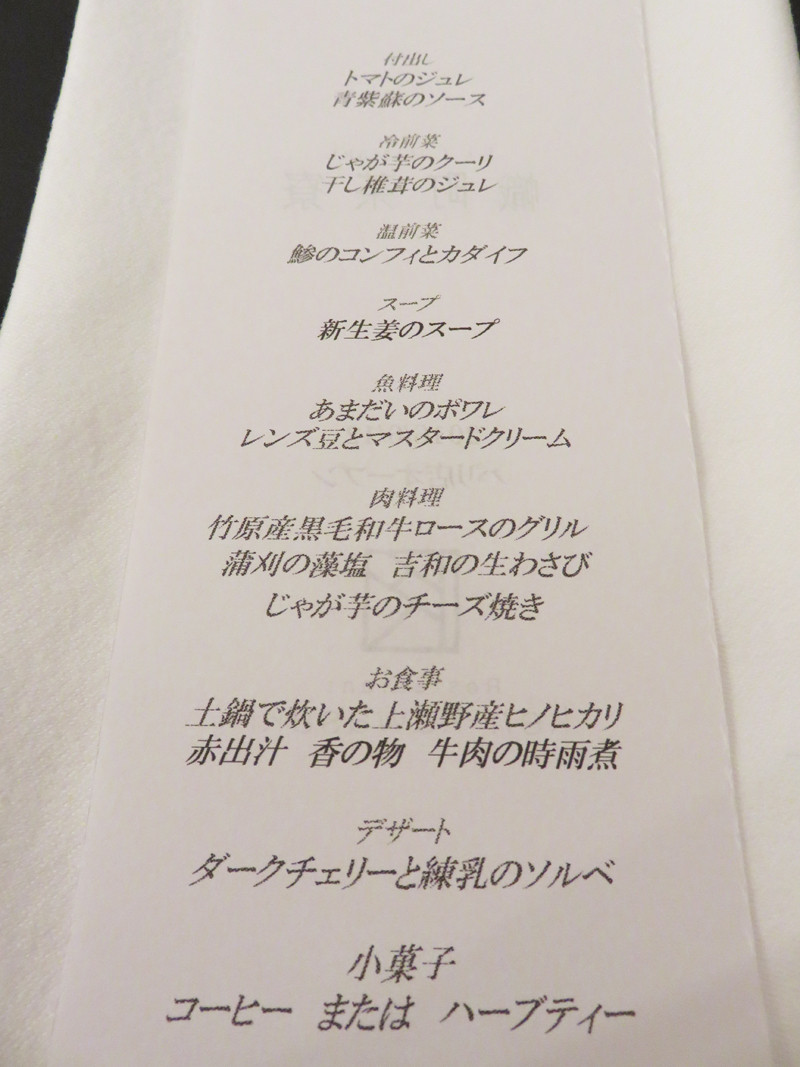 付出し
トマトのジュレ
青紫蘇のソース
冷前菜
じゃが芋のクーリ
干し椎茸のジュレ
温前菜
鯵のコンフィとカダイフ
スープ
新生姜のスープ
魚料理
あまだいのポワレ
レンズ豆とマスタードクリーム
肉料理
竹原産黒毛和牛ロースのグリル
蒲刈の藻塩 吉和の生わさび
じゃが芋のチーズ焼き
お食事
土鍋で炊いた上瀬野産ヒノヒカリ
赤出汁 香の物 牛肉の時雨煮
デザート
ダークチェリーと練乳のソルベ
小菓子
コーヒー または ハーブティー